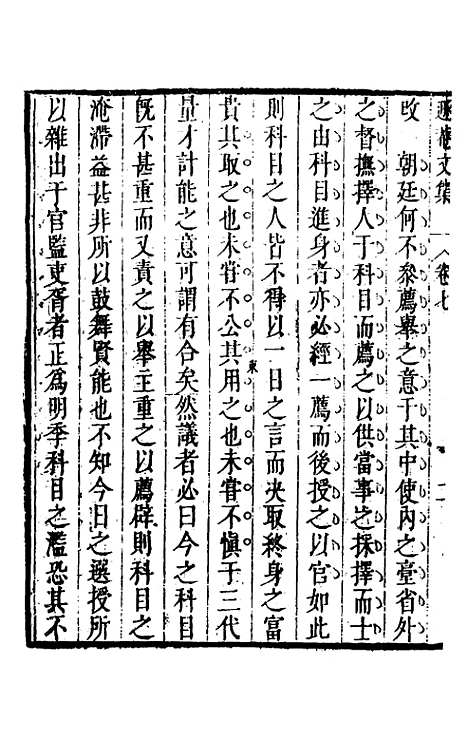 遯菴文集 卷七 二
攺 朝廷何不參薦舉之意于其中使內之臺省外
之督撫擇人于科目而薦之以供當事之採擇而士
之由科目進身者亦必經一薦而後授之以官如此
則科目之人皆不得以一日之言而決取終身之富
貴其取之也未嘗不公其用之也未嘗不慎于三代
量才計能之意可謂有合矣然議者必曰今之科目
旣不甚重而又責之以舉主重之以薦辟則科目之
淹滯益甚非所以鼓舞賢能也不知今日之選授所
以雜出于官監吏胥者正爲明季科目之濫恐其不